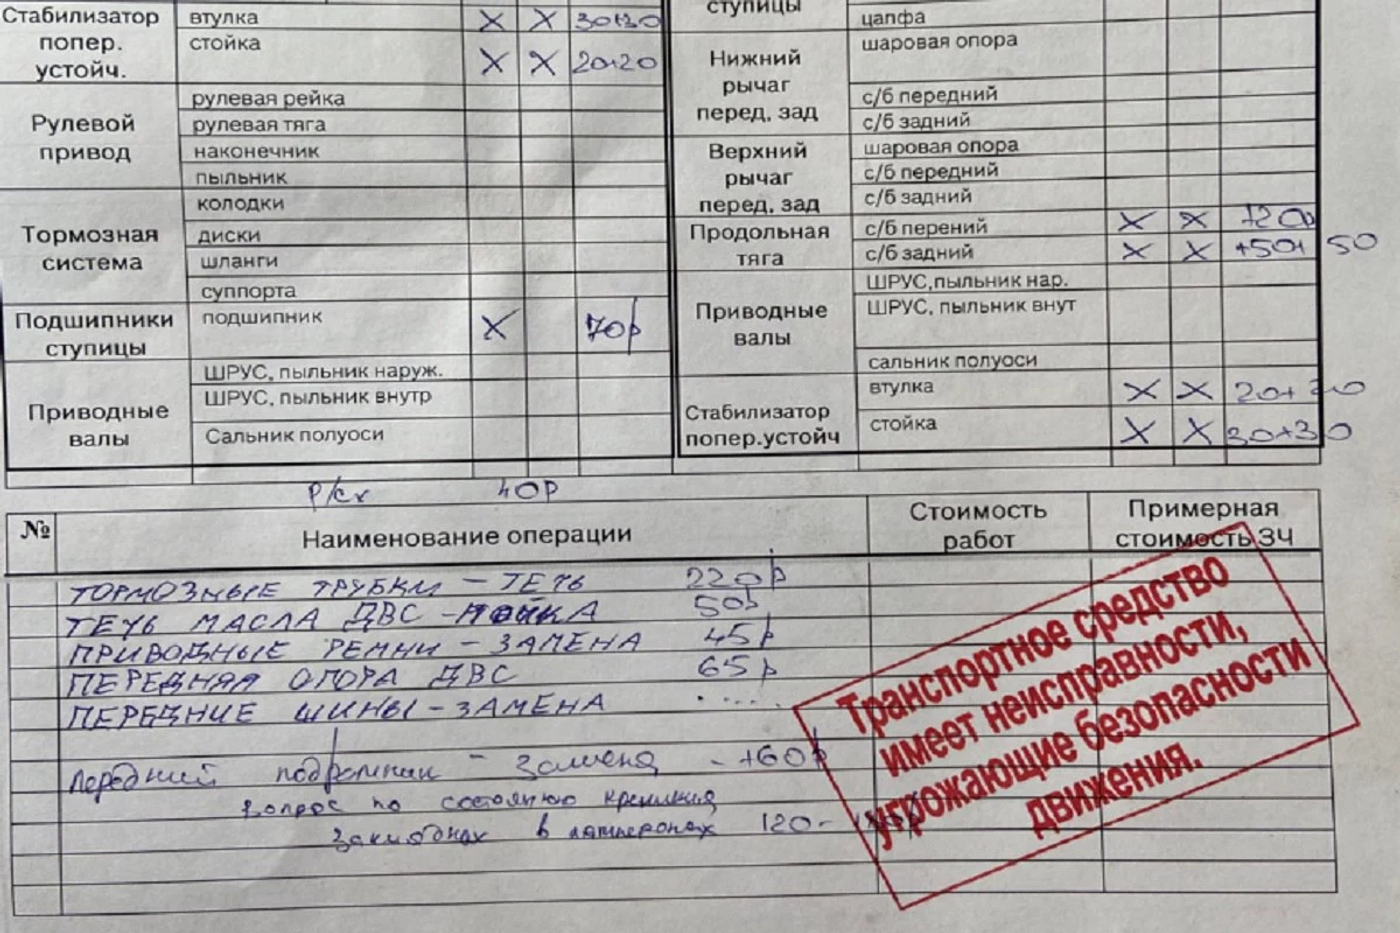 Стабилизатор попер. устойч.
втулка X X 30+30
стойка X X 20+20
Рулевой привод
рулевая рейка
рулевая тяга
наконечник
пыльник
Тормозная система
колодки
диски
шланги
суппорта
Подшипники ступицы
подшипник X 70р
Приводные валы
ШРУС, пыльник наруж.
ШРУС, пыльник внутр
Сальник полуоси
ступицы
цапфа
Нижний рычаг перед, зад
шаровая опора
с/б передний
с/б задний
Верхний рычаг перед, зад
шаровая опора
с/б передний
с/б задний
Продольная тяга
с/б перений X X 120р
с/б задний X X +50+50
Приводные валы
ШРУС,пыльник нар.
ШРУС, пыльник внут
сальник полуоси
Стабилизатор попер.устойч
втулка X X 20+20
стойка X X 30+30
р/сх 40р
№ Наименование операции Стоимость работ Примерная стоимость ЗЧ
ТОРМОЗНЫЕ ТРУБКИ – ТЕЧЬ 220р
ТЕЧЬ МАСЛА ДВС – МОЙКА 50р
ПРИВОДНЫЕ РЕМНИ – ЗАМЕНА 45р
ПЕРЕДНЯЯ ОПОРА ДВС 65р
ПЕРЕДНИЕ ШИНЫ – ЗАМЕНА .....
Передний подрамник – замена - 160р
Вопрос по состоянию крепления
закладных в лонжеронах 120-
Транспортное средство
имеет неисправности,
угрожающие безопасности
движения.